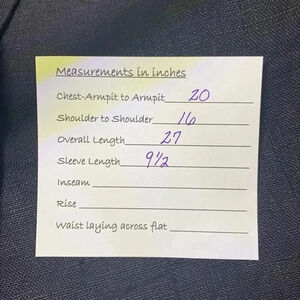 Measurements in inches
Chest-Armpit to Armpit 20
Shoulder to Shoulder 16
Overall Length 27
Sleeve Length 9 1/2
Inseam
Rise
Waist laying across flat